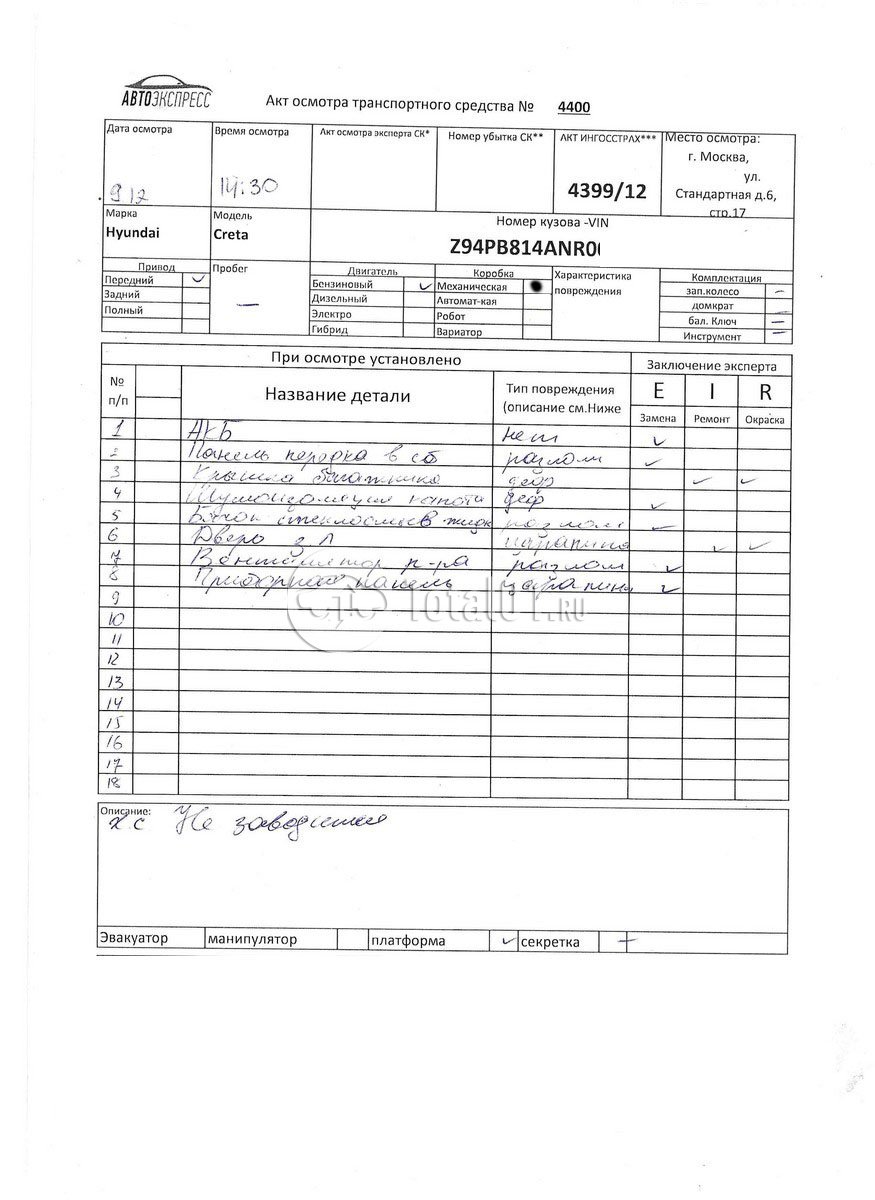 АВТОЭКСПРЕСС
Акт осмотра транспортного средства № 4400
Дата осмотра
Время осмотра
Акт осмотра эксперта СК*
Номер убытка СК**
АКТ ИНГОССТРАХ***
Место осмотра:
г. Москва,
ул.
Стандартная д.6,
стр.17
9 12
14:30
4399/12
Марка
Hyundai
Модель
Creta
Номер кузова -VIN
Z94PB814ANR0
Привод
Передний ✓
Задний
Полный
Пробег
—
Двигатель
Бензиновый ✓
Дизельный
Электро
Гибрид
Коробка
Механическая
Автомат-кая
Робот
Вариатор
Характеристика
повреждения
Комплектация
зап.колесо —
домкрат —
бал. Ключ —
Инструмент —
При осмотре установлено
Заключение эксперта
№
п/п
Название детали
Тип повреждения
(описание см.Ниже
E I R
Замена Ремонт Окраска
1 АКБ нет ✓
2 Панель передка в сб разлом ✓
3 Крышка багажника деф ✓ ✓
4 Шумоизоляция капота деф ✓
5 Бачок стеклоомыв жидк разлом ✓
6 Дверь з Л царапина ✓ ✓
7 Вентилятор р-ра разлом ✓
8 Приборная панель царапина ✓
9
10
11
12
13
14
15
16
17
18
Total01.RU
Описание:
х с Не заводится
Эвакуатор манипулятор платформа ✓ секретка —